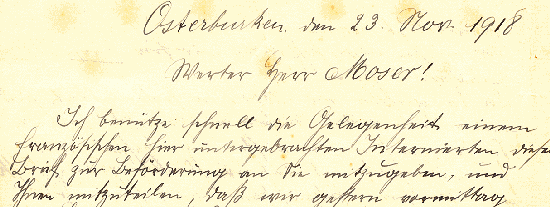 Osterburken. den 23 Nov. 1918
Werter Herr Moser!
Ich benütze schnell die Gelegenheit einem
französischen hier untergebrachten Internierten, diesen
Brief zur Beförderung an Sie mitzugeben, und
Ihnen mitzuteilen, daß wir gestern vormittag